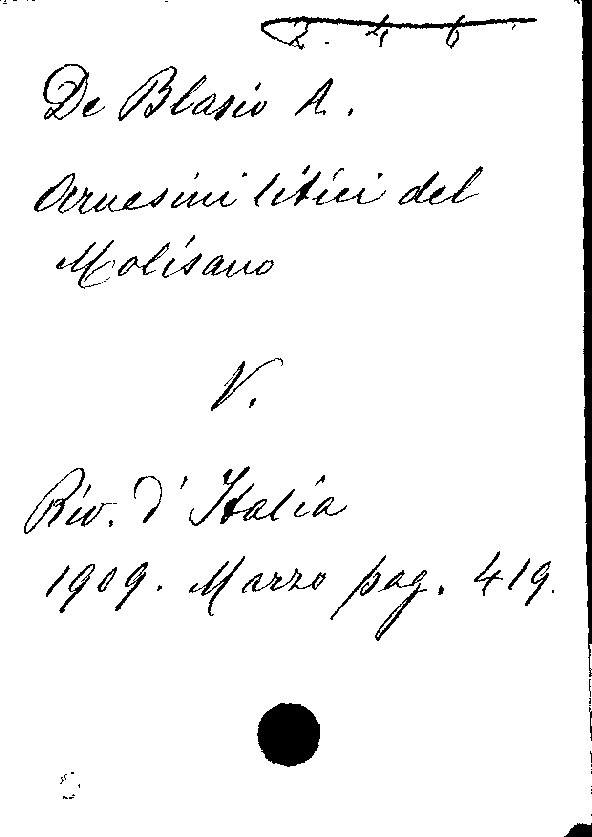 De Blasio A.
Arnesini litici del
Molisano
V.
Riv. d'Italia
1909. Marzo pag. 419.